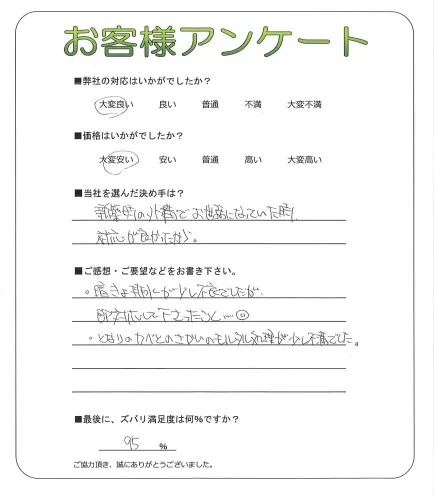 お客様アンケート
■弊社の対応はいかがでしたか？
大変良い 良い 普通 不満 大変不満
■価格はいかがでしたか？
大変安い 安い 普通 高い 大変高い
■当社を選んだ決め手は？
の外構でお世話になっていた時、
対応が良かったから。
■ご感想・ご要望などをお書き下さい。
が少し不良でしたが、
即対応して下さったこと…
・となりのカベとのさかいのモルタル処理が少し不満でした。
■最後に、ズバリ満足度は何％ですか？
95 ％
ご協力頂き、誠にありがとうございました。